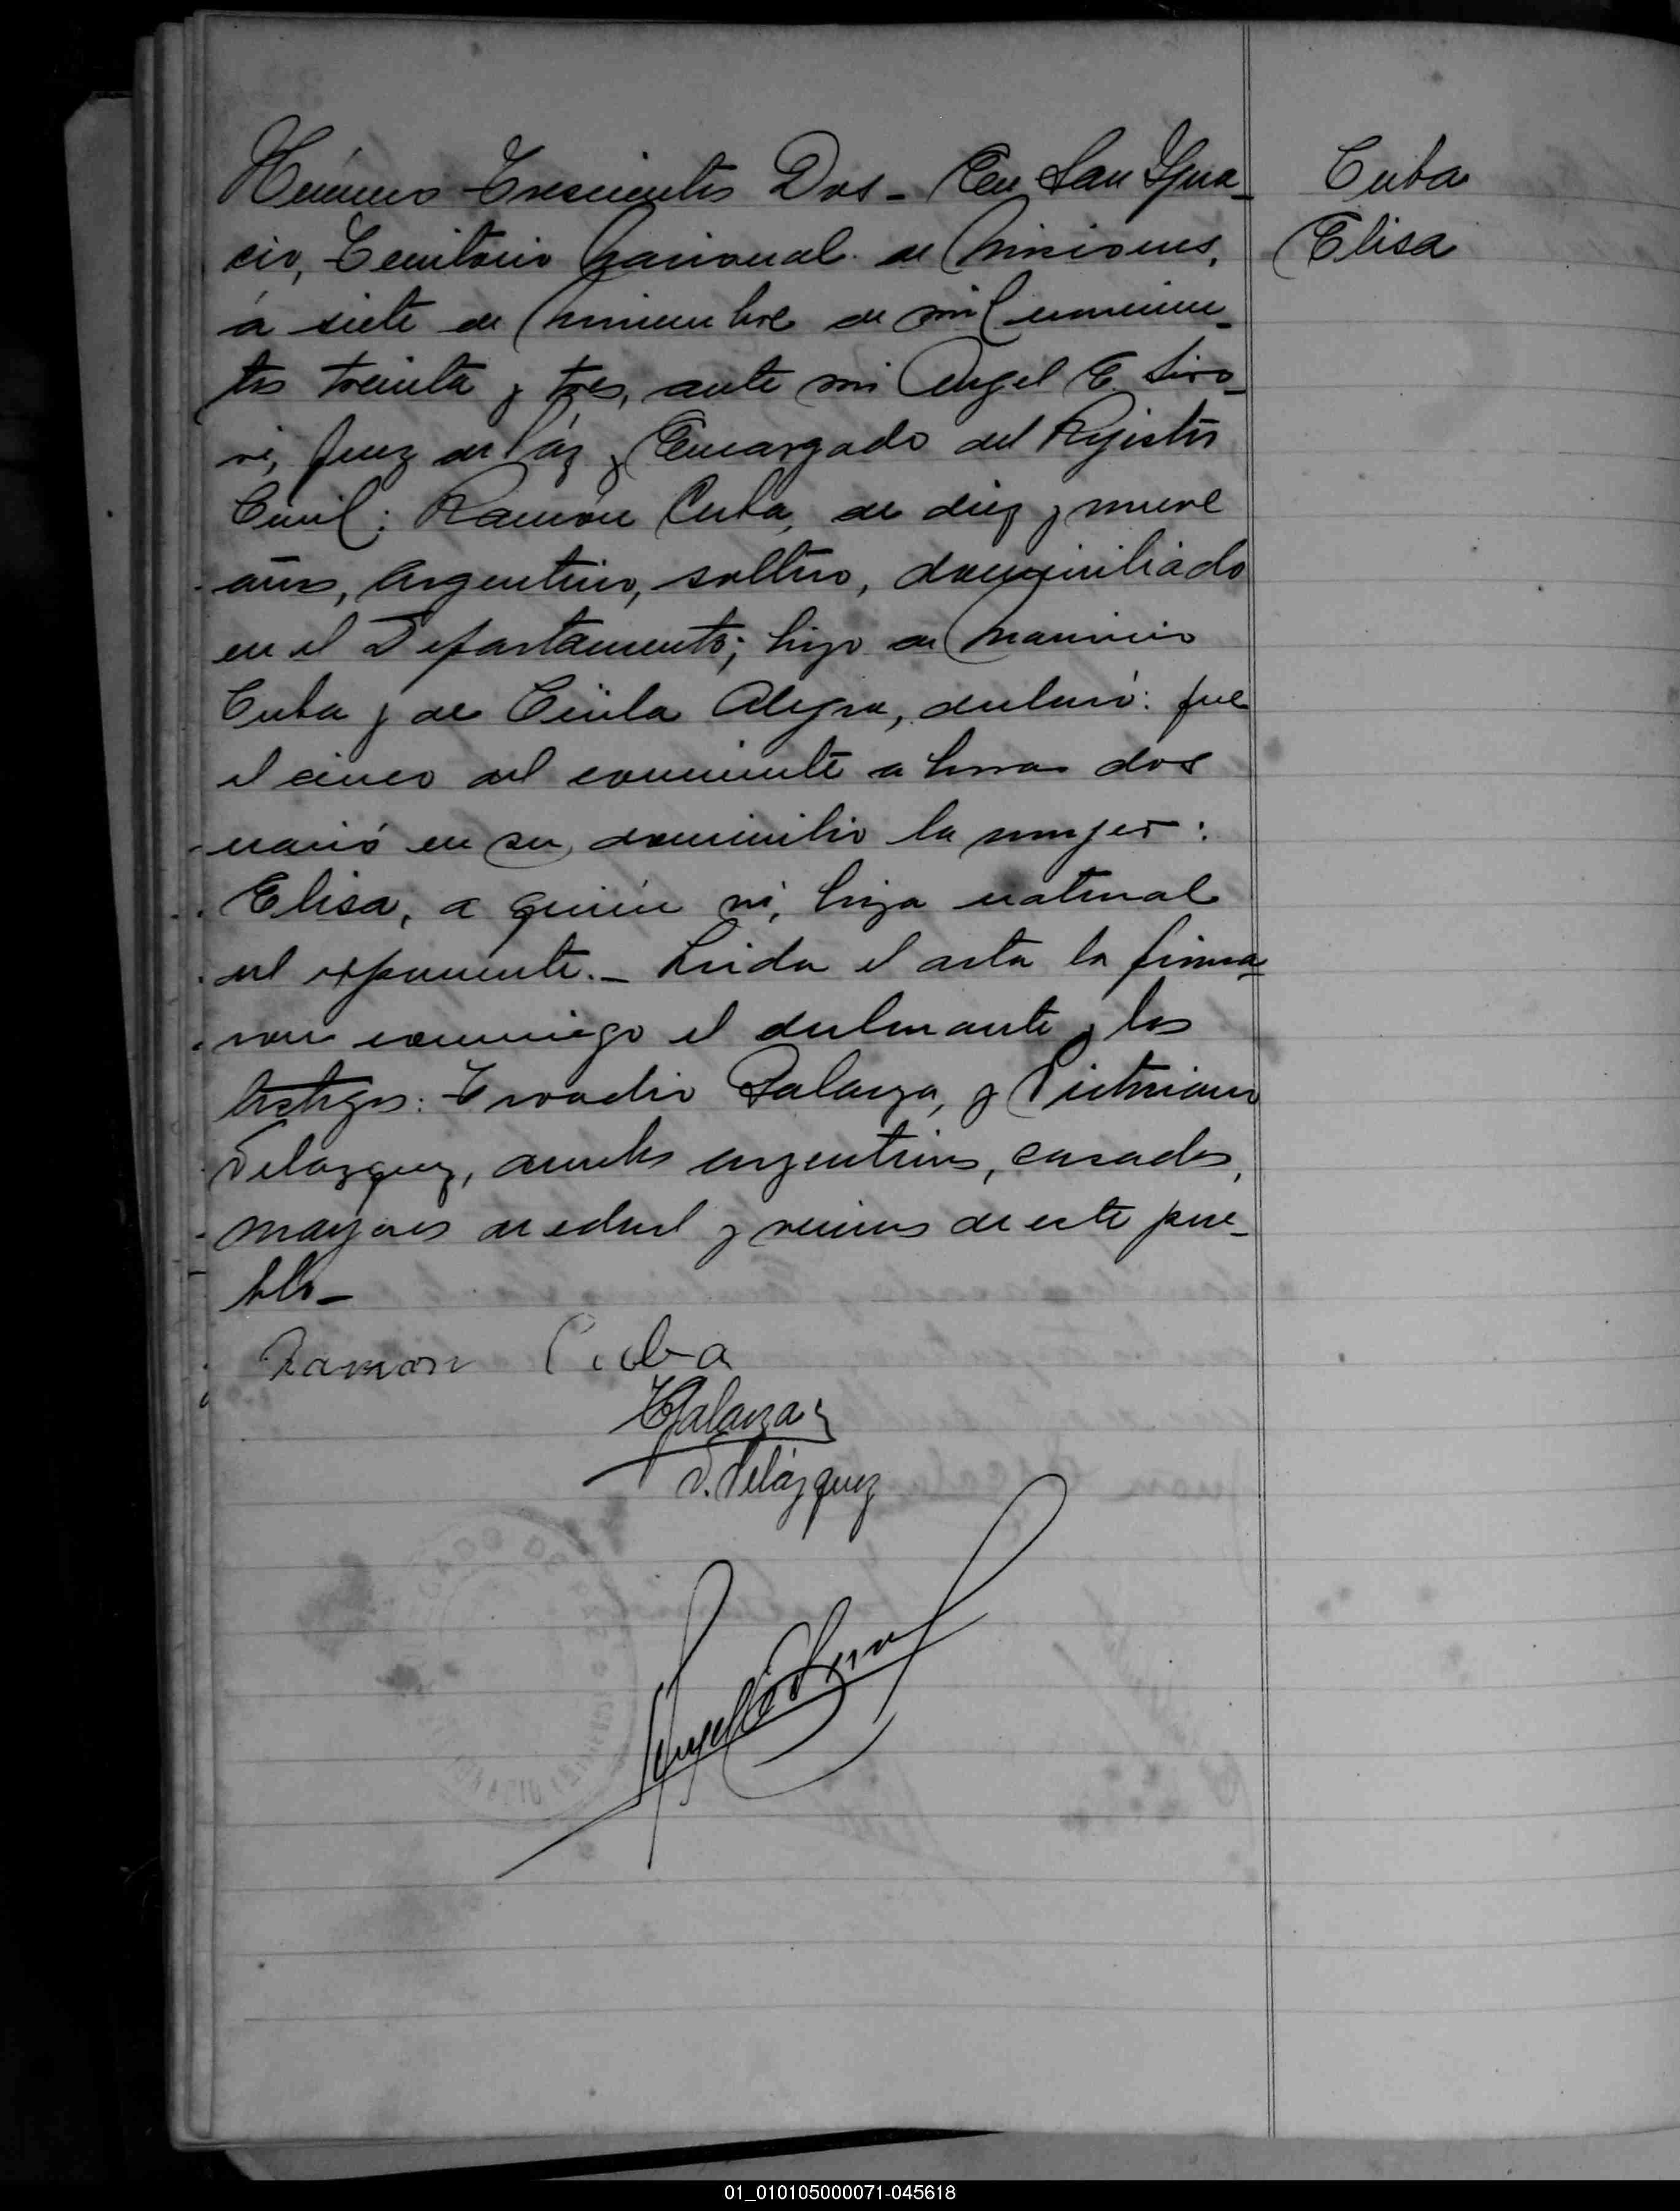 Número Trescientos Dos - En San Igna-
cio, Territorio Nacional de Misiones,
á siete de Noviembre de mil novecien-
tos treinta y tres, ante mi Angel E.
Juez de Páz y Encargado del Rejistro
Civil: Ramón Cuba, de diez y nueve
años, argentino, soltero, domiciliado
en el Departamento; hijo de Mauricio
Cuba y de Alegre, declaró: que
el cinco del corriente a horas dos
nació en su domicilio la mujer:
Elisa, a quién ví, hija natural
del exponente.- Leida el acta la firma-
ron conmigo el declarante y los
testigos: Galarza, y Victoriano
Velazquez, ambos argentinos, casados,
mayores de edad y vecinos de este pue-
blo-
Ramon Cuba
Galarza
V. Velázquez
Angel E
Cuba
Elisa
01_010105000071-045618